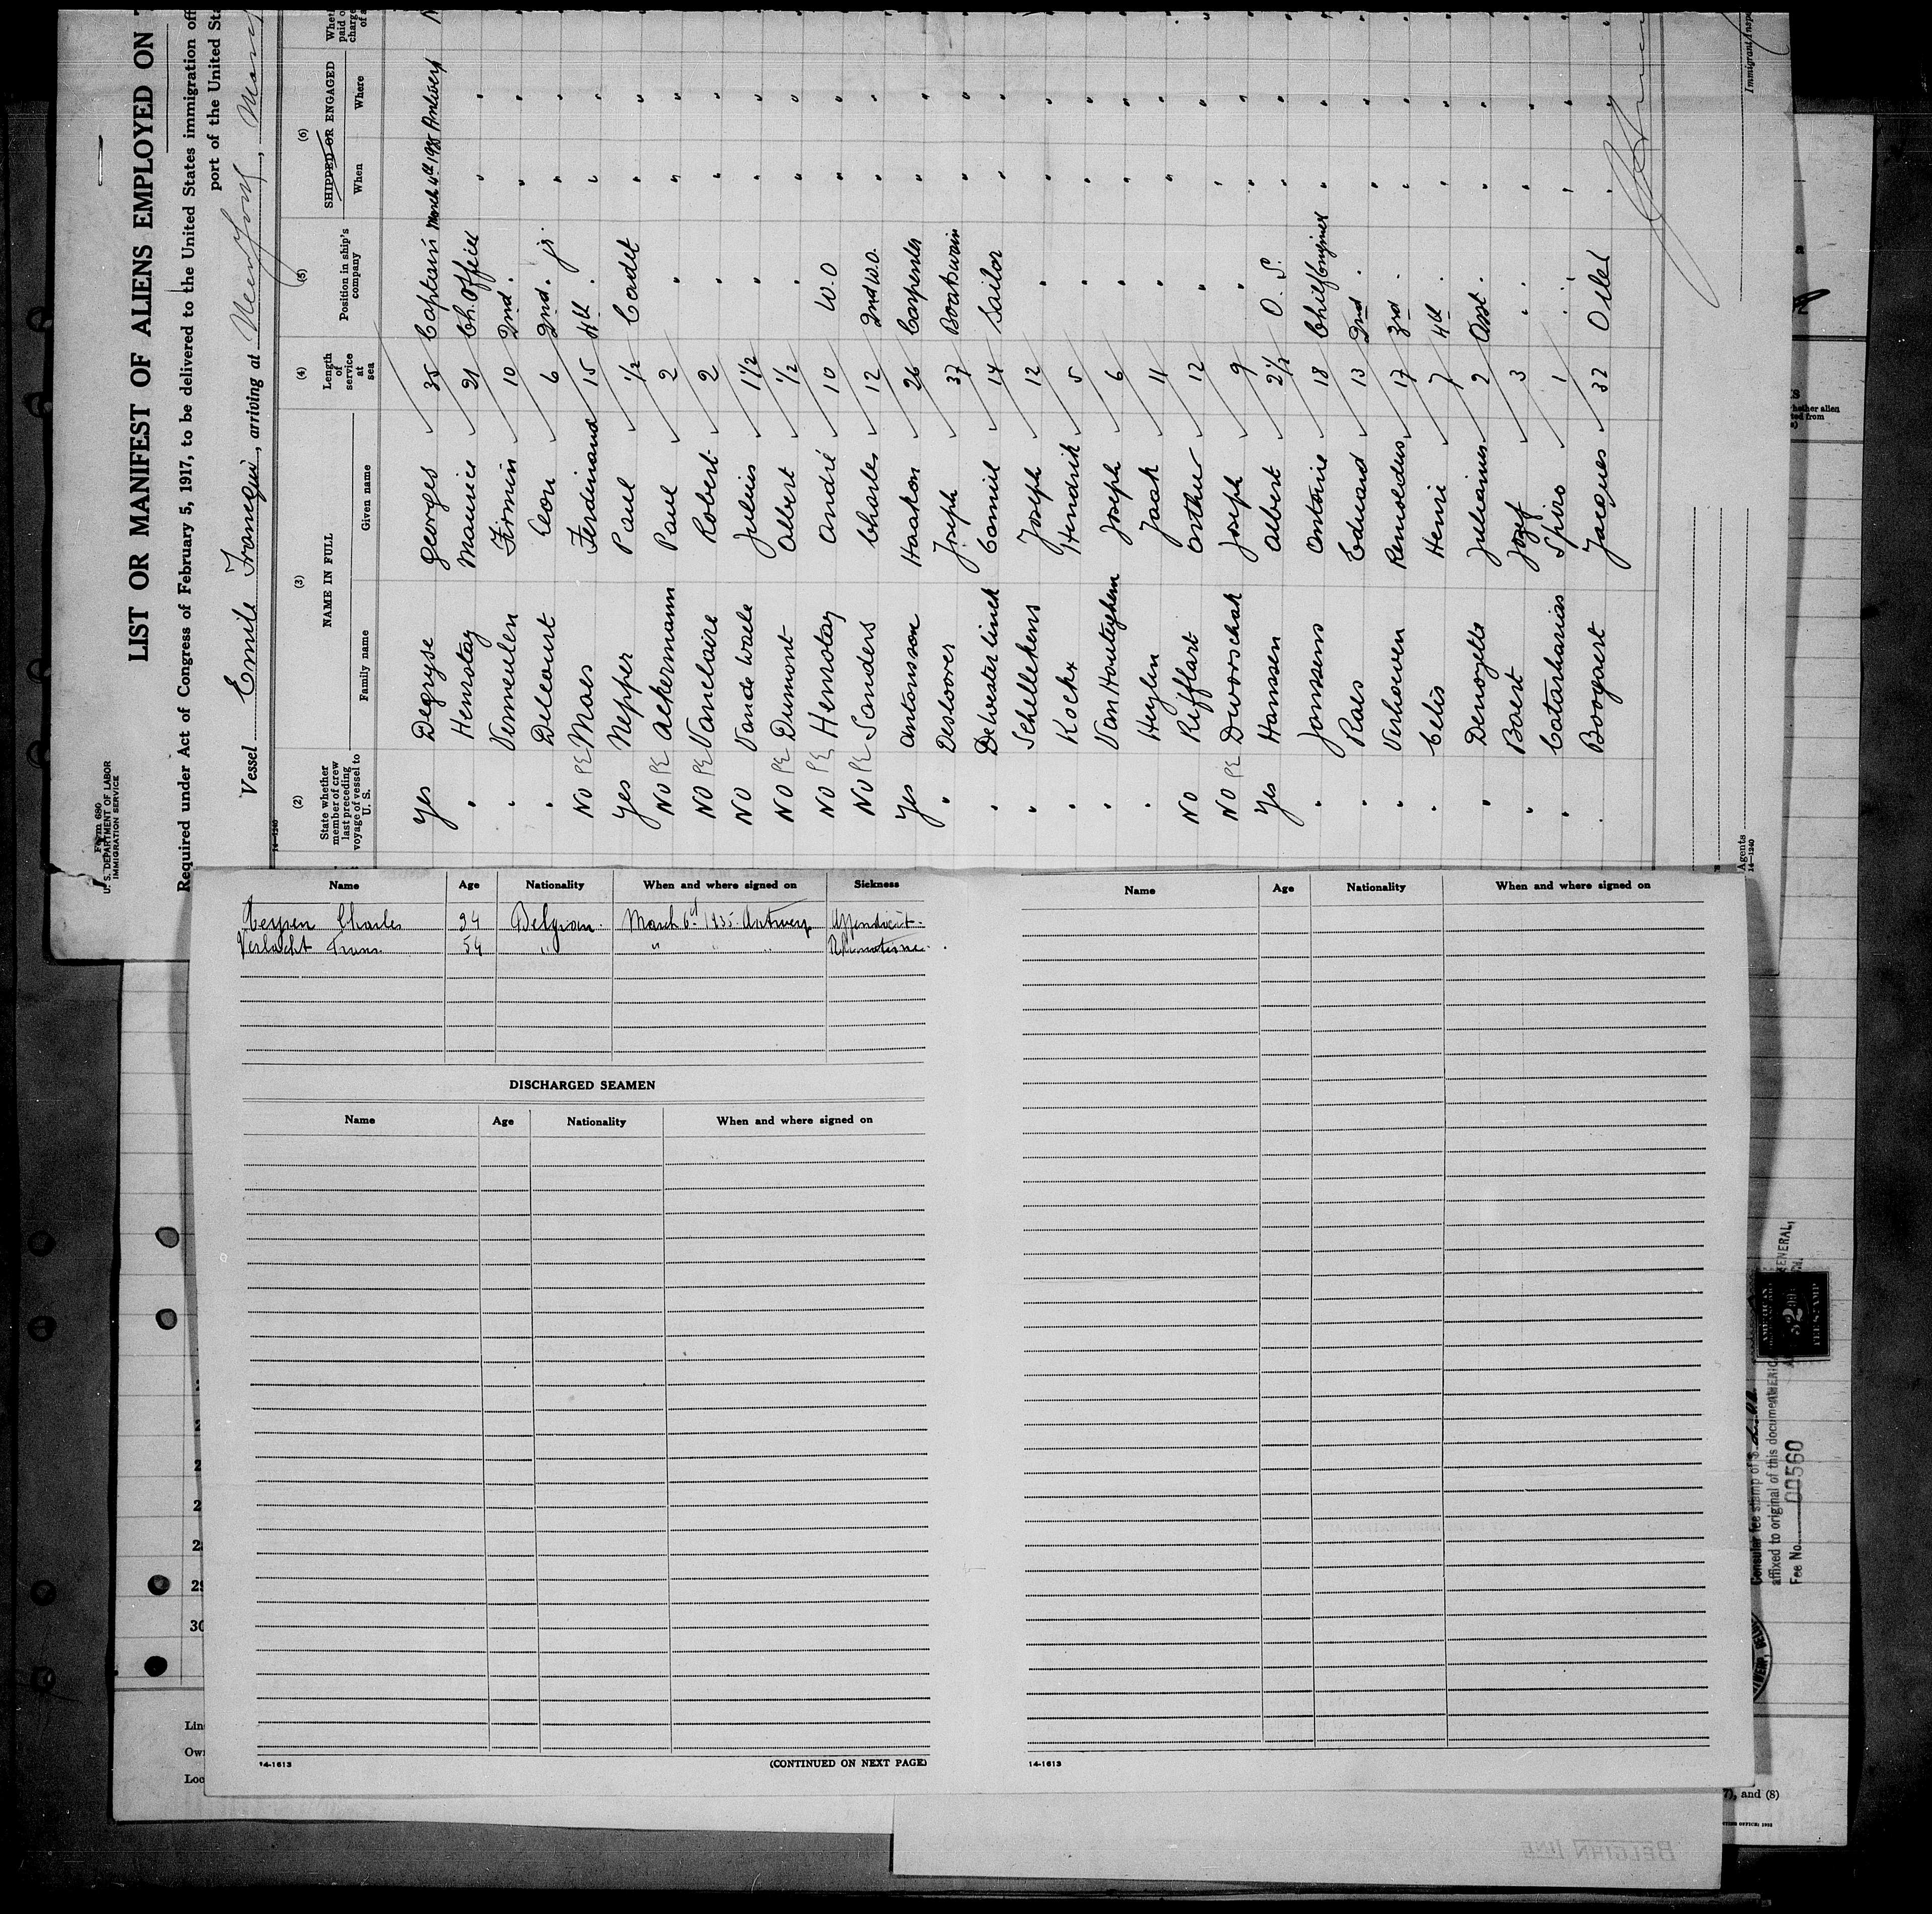 Form 680
U. S. DEPARTMENT OF LABOR
IMMIGRATION SERVICE
LIST OR MANIFEST OF ALIENS EMPLOYED ON
Required under Act of Congress of February 5, 1917, to be delivered to the United States immigration off
port of the United Sta
Vessel Emile Francqui, arriving at New York,
14-1240
(2) (3) (4) (5) (6)
State whether member of crew last preceding voyage of vessel to U. S. NAME IN FULL Length of service at sea Position in ship's company SHIPPED OR ENGAGED
Family name Given name When Where
Yes Degryse Georges 35 Captain March 6th 1935 Antwerp
" Henrotay Maurice 21 Ch. Officer " "
" Vermeulen Firmin 10 2nd " " "
" Delcourt Leon 6 2nd " jr " "
No PE Maes Ferdinand 15 4th " " "
Yes Nepper Paul 1/2 Cadet " "
No PE Ackermann Paul 2 " " "
No PE Vanclaire Robert 2 " " "
No Vande Walle Julius 1 1/2 " " "
No PE Dumont Albert 1/2 " " "
No PE Henrotay André 10 W.O " "
No PE Sanders Charles 12 2nd W.O. " "
Yes Antonsson Haakon 26 Carpenter " "
" Desloover Joseph 37 Boatswain " "
" Dewesterlinck Camiel 14 Sailor " "
" Schellekens Joseph 12 " " "
" Kockx Hendrik 5 " " "
" Van Houteghem Joseph 6 " " "
" Heylen Jaak 11 " " "
No Rifflart Arthur 12 " " "
No PE Dworschak Joseph 9 " " "
Yes Hanssen Albert 2 1/2 O. S. " "
" Janssens Antoine 18 Chief Engineer " "
" Raes Eduard 13 2nd " " "
" Verhoeven Remoldus 17 3rd " " "
" Celis Henri 7 4th " " "
" Demoyelle Julianus 2 Asst. " "
" Baert Jozef 3 " " "
" Catasharias Spiro 1 " " "
" Boogaert Jacques 32 Oiler " "
Agents
14-1240
Immigrant Inspe
Name Age Nationality When and where signed on Sickness
Charles 24 Belgian March 6th 1935 Antwerp Appendicit.
Verlacht Frans 54 " " " "
DISCHARGED SEAMEN
Name Age Nationality When and where signed on
14-1613 (CONTINUED ON NEXT PAGE)
Name Age Nationality When and where signed on
14-1613
29
30
Lin
Own
Loc
AMERICAN
FEE STAMP
affixed to original of this document
Fee No. 00560
7), and (8)
BELGIAN LINE